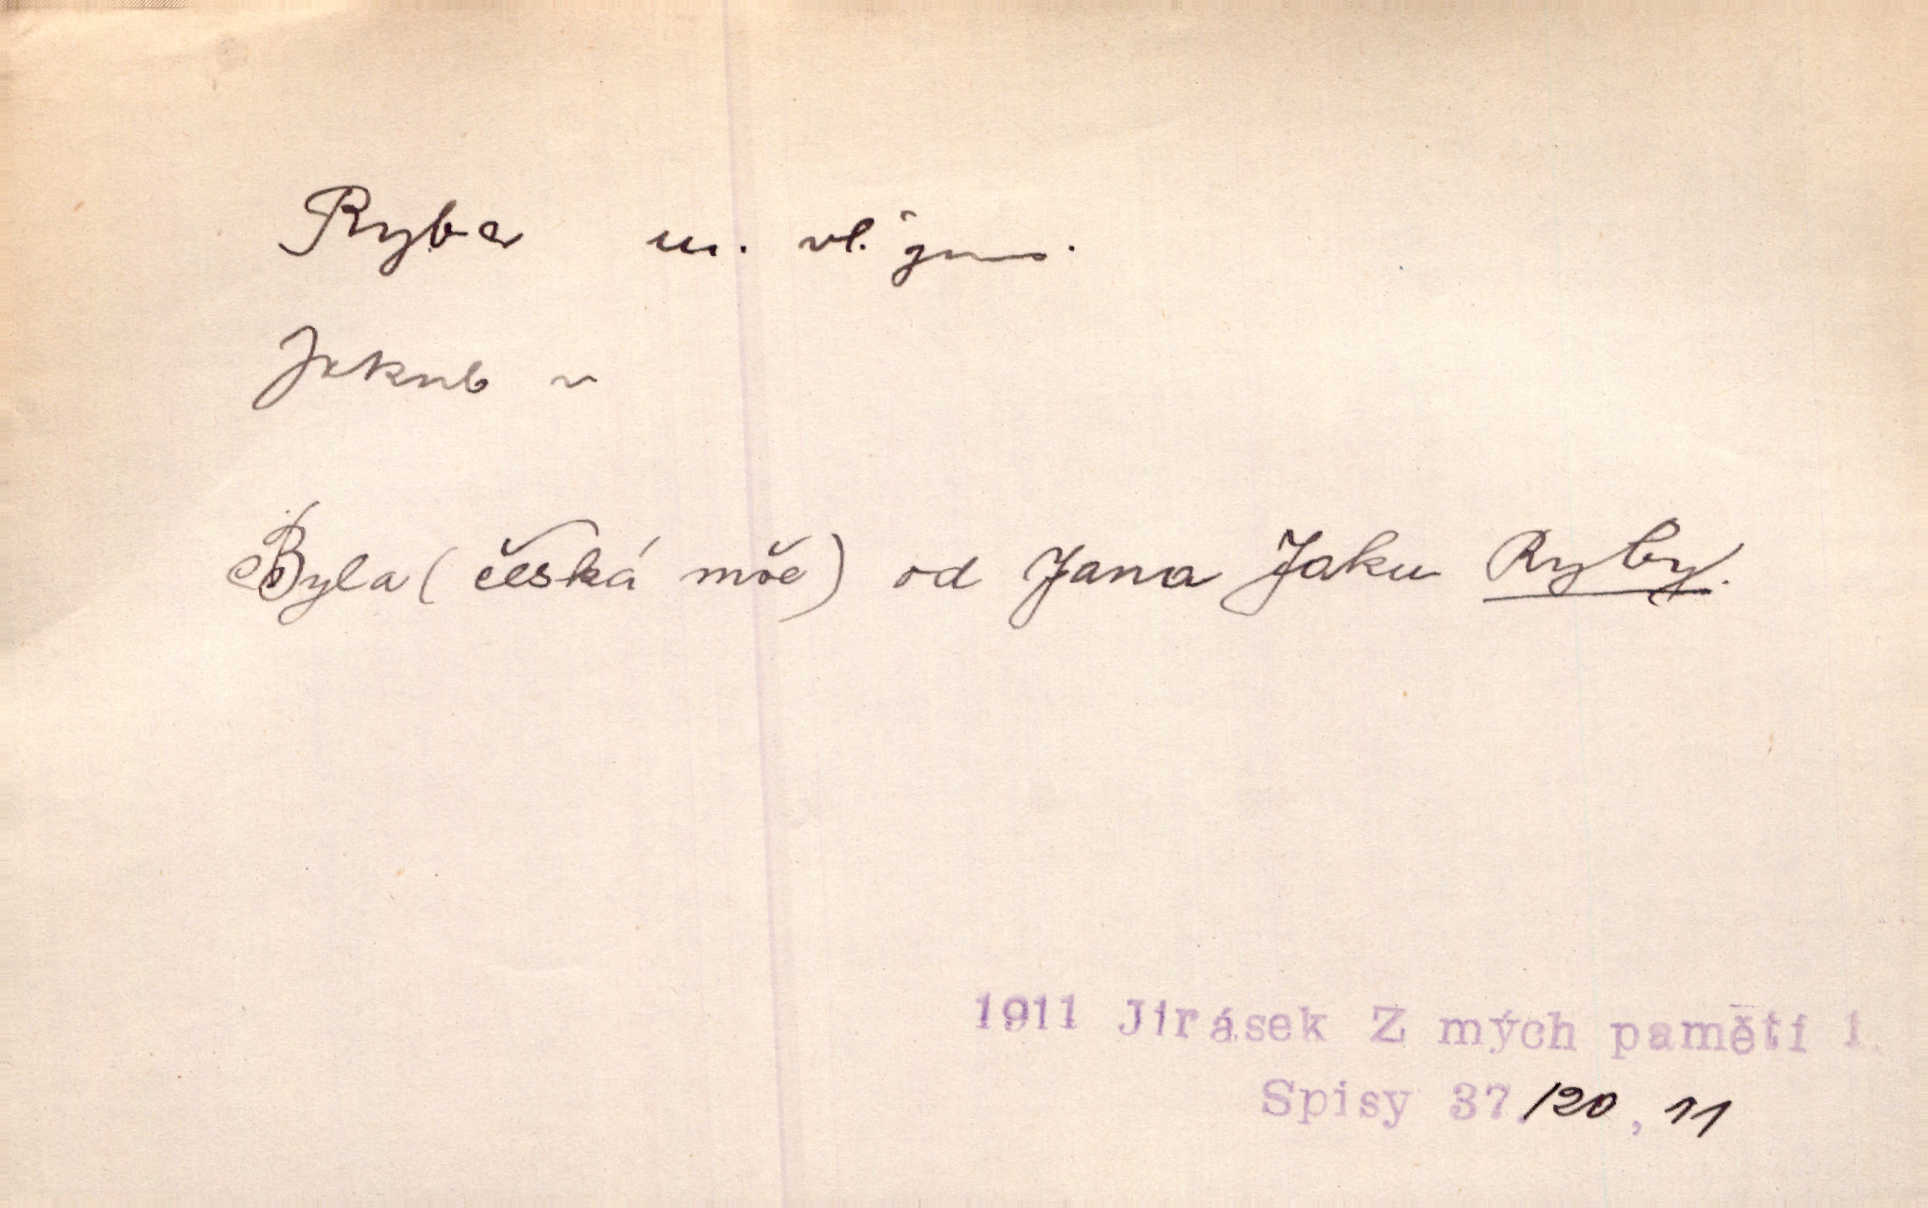 Ryba m. vl. jm.
Jakub v
Byla (česká mše) od Jana Jaku Ryby.
1911 Jirásek Z mých pamětí 1.
Spisy 37,120, 11